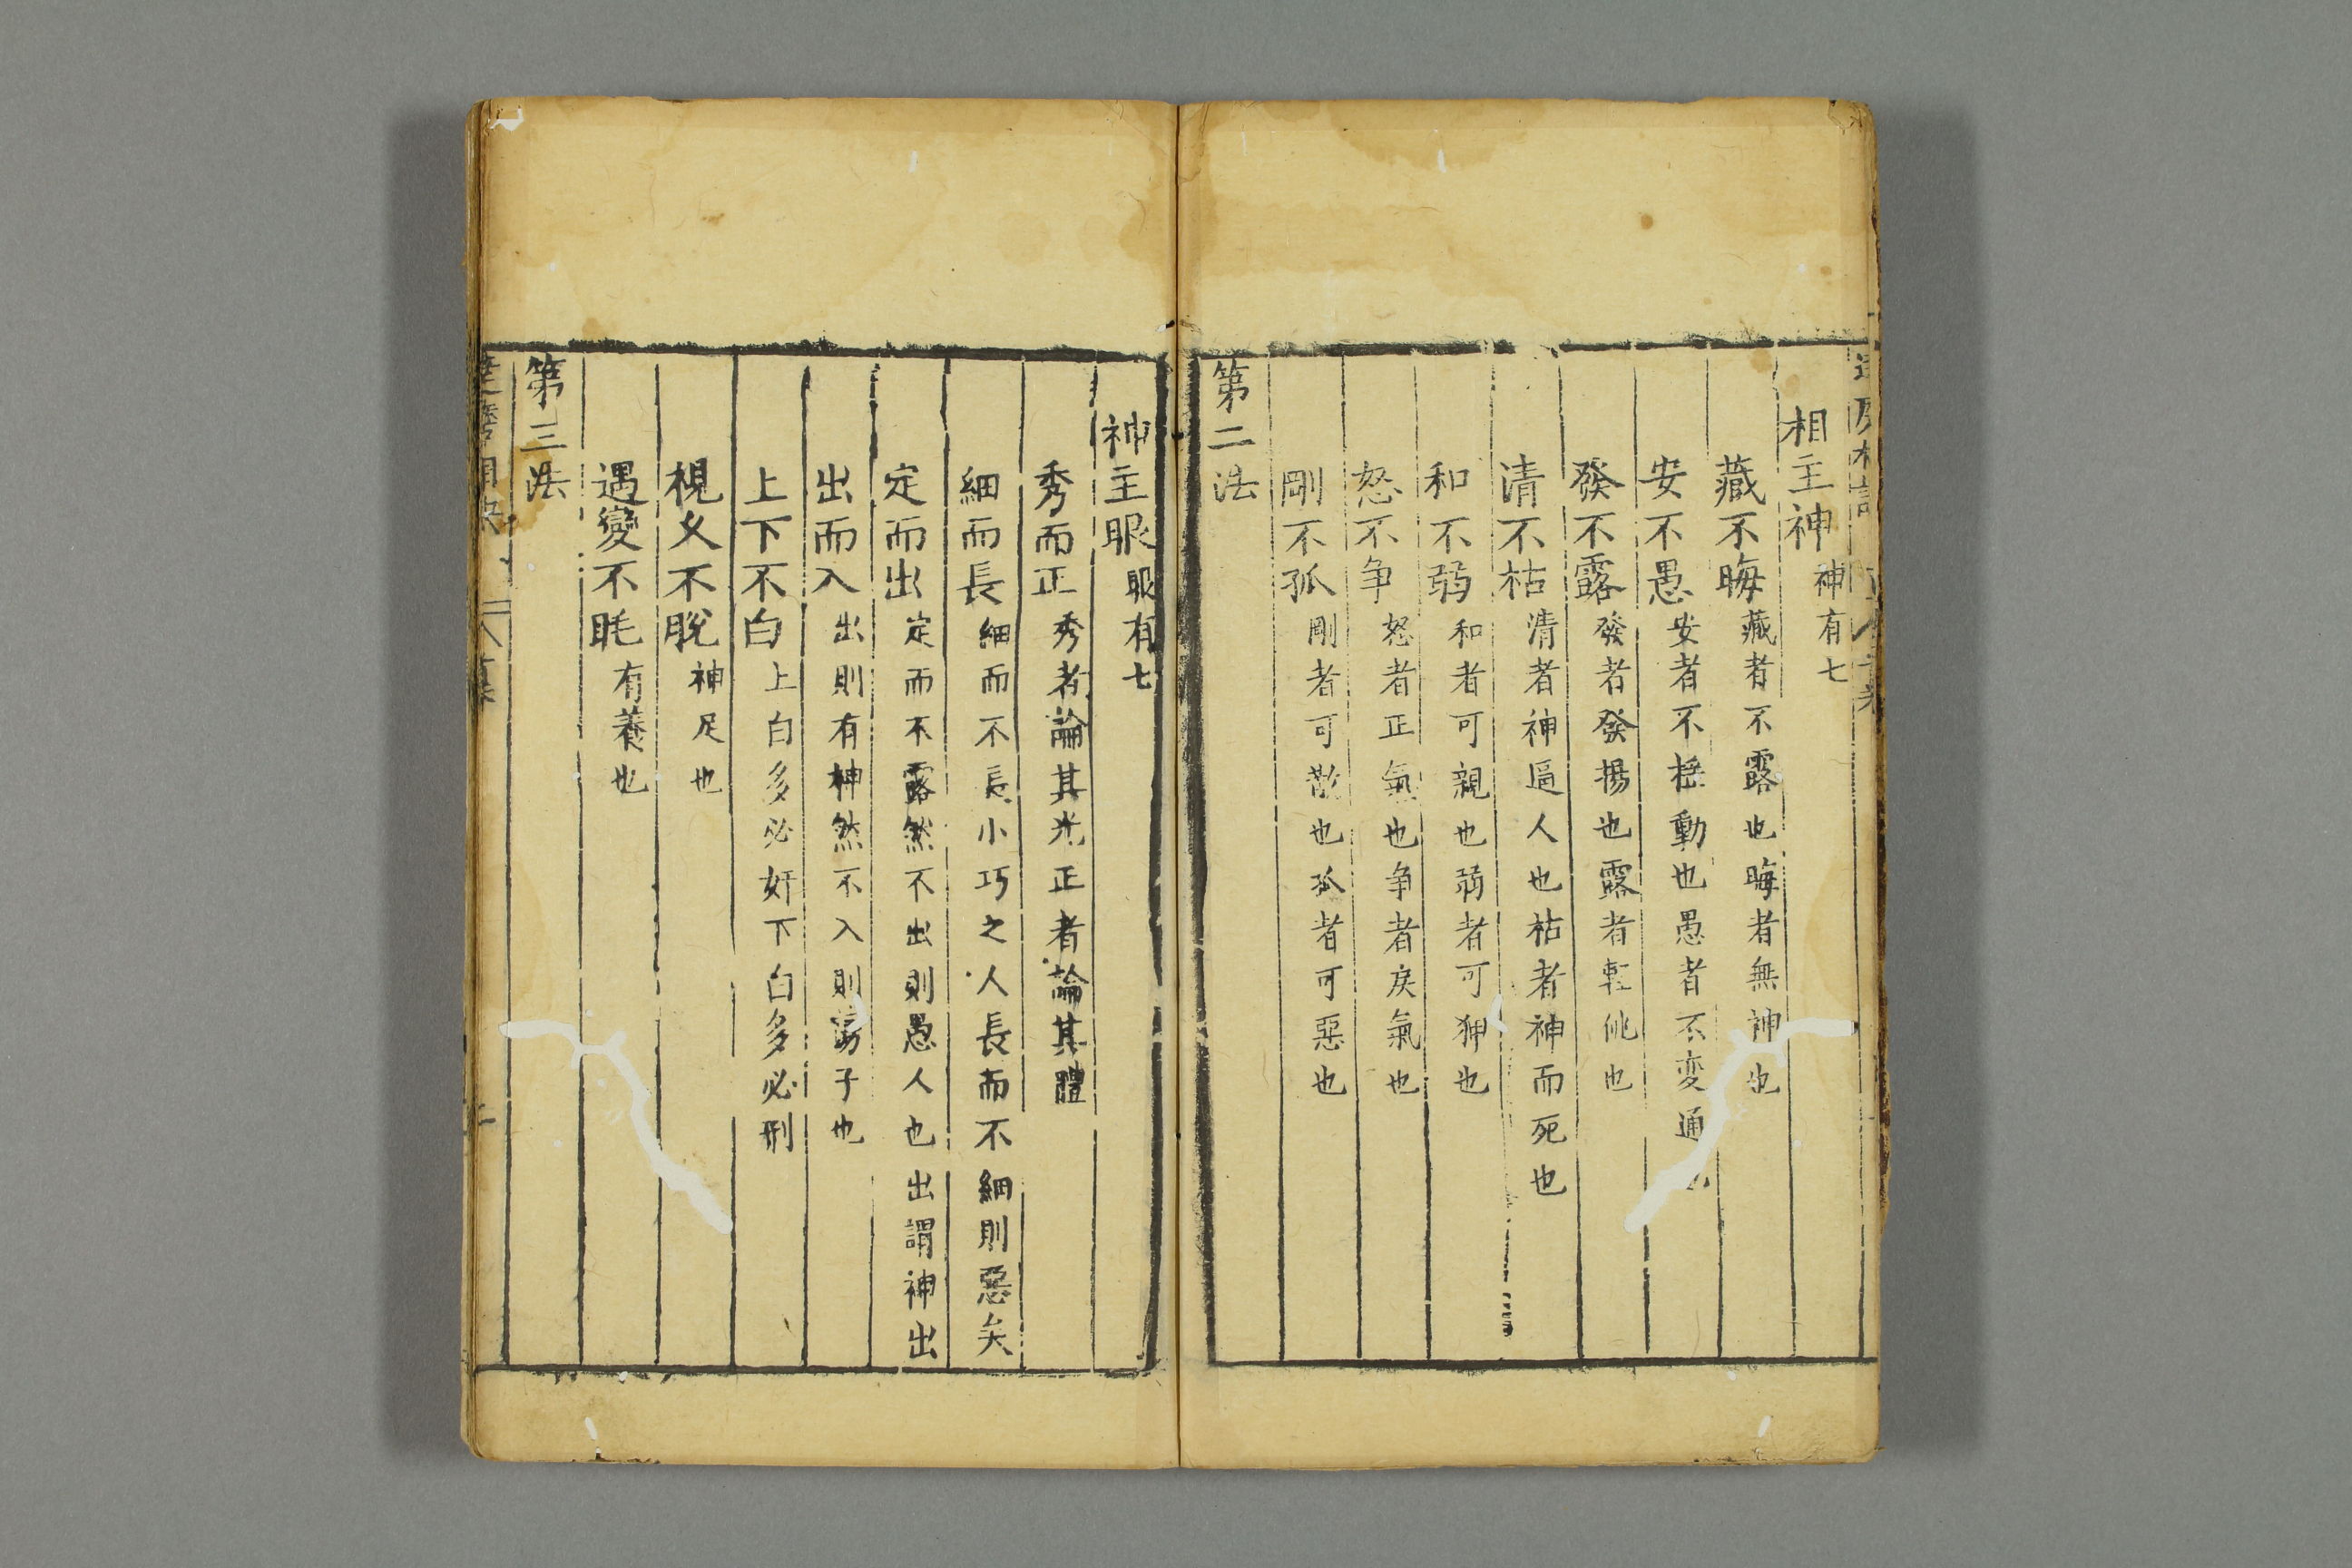 相主神神有七
藏不晦藏者不露也晦者無神也
安不愚安者不揺動也愚者不変通
發不露發者發揚也露者輕佻也
清不枯清者神逼人也枯者神而死也
和不弱和者可親也弱者可狎也
怒不争怒者正氣也争者戾氣也
剛不孤剛者可也孤者可惡也
第二法
神主眼眼有七
秀而正秀者論其光正者論其體
細而長細而不長小巧之人長而不細則惡矣
定而出定而不露然不出則愚人也出謂神出
出而入出則有神然不入則蕩子也
上下不白上白多必奸下白多必刑
視久不脫神足也
遇變不眊有養也
第三法